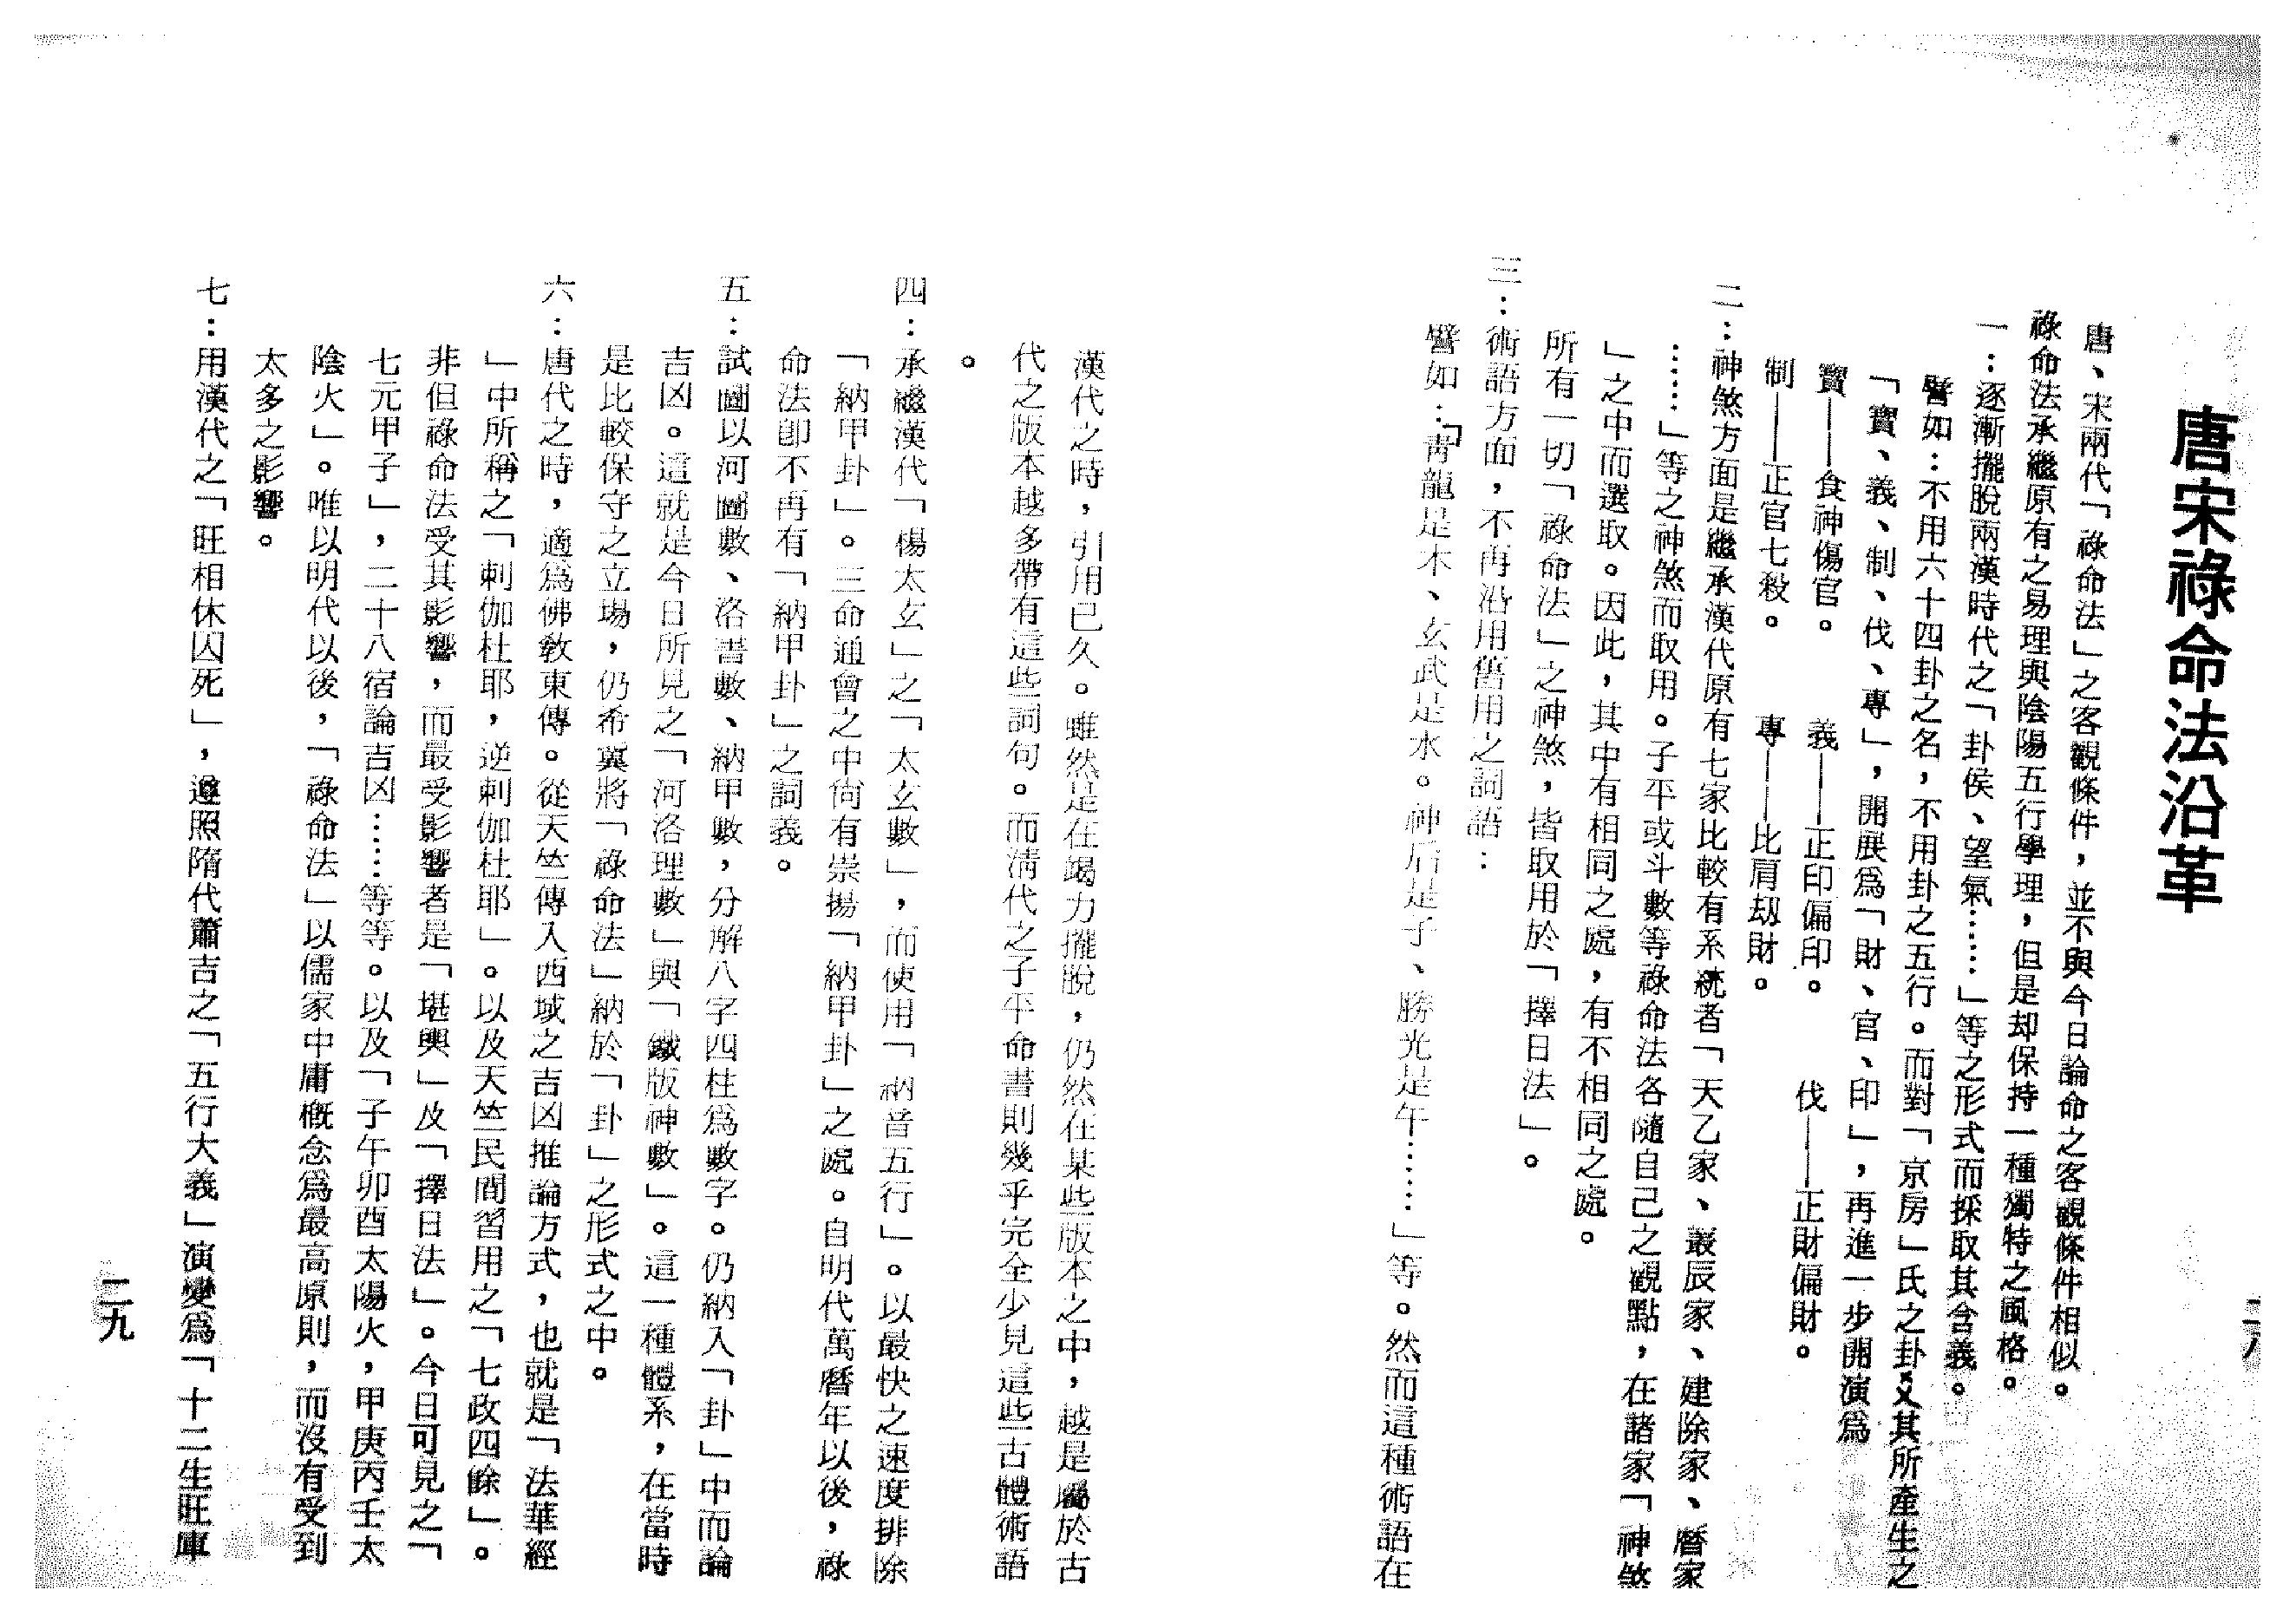 唐宋祿命法沿革
唐、宋兩代「祿命法」之客觀條件，並不與今日論命之客觀條件相似。
祿命法承繼原有之易理與陰陽五行學理，但是却保持一種獨特之風格。
一：逐漸擺脫兩漢時代之「卦侯、望氣……」等之形式而採取其含義。
譬如：不用六十四卦之名，不用卦之五行。而對「京房」氏之卦又其所產生之
「寶、義、制、伐、專」，開展爲「財、官、印」，再進一步開演爲
寶——食神傷官。　義——正印偏印。　伐——正財偏財。
制——正官七殺。　專——比肩刼財。
二：神煞方面是繼承漢代原有七家比較有系統者「天乙家、叢辰家、建除家、曆家
……」等之神煞而取用。子平或斗數等祿命法各隨自己之觀點，在諸家「神煞
」之中而選取。因此，其中有相同之處，有不相同之處。
所有一切「祿命法」之神煞，皆取用於「擇日法」。
三：術語方面，不再沿用舊用之詞語：
譬如：「靑龍是木、玄武是水。神后是子、勝光是午……」等。然而這種術語在
二八
漢代之時，引用已久。雖然是在竭力擺脫，仍然在某些版本之中，越是屬於古
代之版本越多帶有這些詞句。而淸代之子平命書則幾乎完全少見這些古體術語
。
四：承繼漢代「楊太玄」之「太玄數」，而使用「納音五行」。以最快之速度排除
「納甲卦」。三命通會之中尙有崇揚「納甲卦」之處。自明代萬曆年以後，祿
命法卽不再有「納甲卦」之詞義。
五：試圖以河圖數、洛書數、納甲數，分解八字四柱爲數字。仍納入「卦」中而論
吉凶。這就是今日所見之「河洛理數」與「鐵版神數」。這一種體系，在當時
是比較保守之立場，仍希冀將「祿命法」納於「卦」之形式之中。
六：唐代之時，適爲佛敎東傳。從天竺傳入西域之吉凶推論方式，也就是「法華經
」中所稱之「剌伽杜耶，逆剌伽杜耶」。以及天竺民間習用之「七政四餘」。
非但祿命法受其影響，而最受影響者是「堪輿」及「擇日法」。今日可見之「
七元甲子」，二十八宿論吉凶……等等。以及「子午卯酉太陽火，甲庚丙壬太
陰火」。唯以明代以後，「祿命法」以儒家中庸概念爲最高原則，而沒有受到
太多之影響。
七：用漢代之「旺相休囚死」，遵照隋代蕭吉之「五行大義」演變爲「十二生旺庫
二九